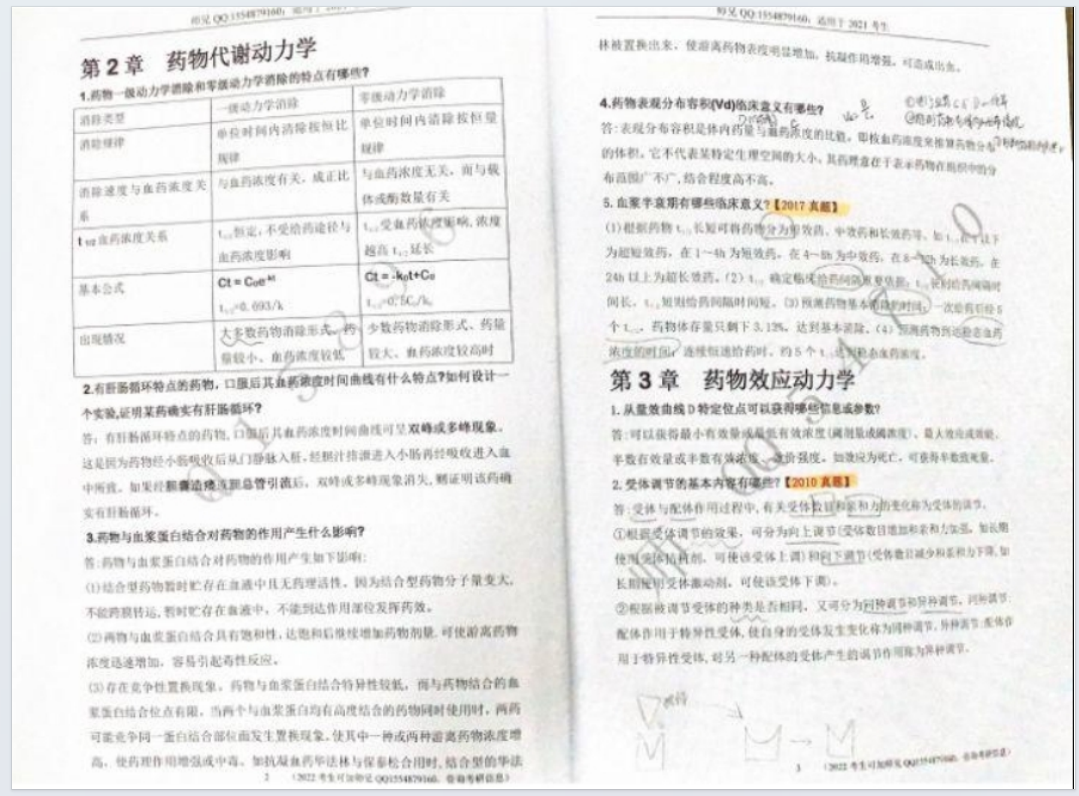 师兄 QQ:1554879160，适用于 2
第 2 章 药物代谢动力学
1.药物一级动力学消除和零级动力学消除的特点有哪些?
消除类型 一级动力学消除 零级动力学消除
消除规律 单位时间内消除按恒比 单位时间内消除按恒量
规律 规律
消除速度与血药浓度关 与血药浓度有关，成正比 与血药浓度无关，而与载
系 体或酶数量有关
t 1/2 血药浓度关系 恒定，不受给药途径与 受血药浓度影响，浓度
血药浓度影响 越高 延长
基本公式 Ct = C₀e⁻ᵏᵗ Ct = -k₀t+C₀
=0.693/k
出现情况 大多数药物消除形式、药 少数药物消除形式、药量
量较小、血药浓度较低 较大、血药浓度较高时
2.有肝肠循环特点的药物，口服后其血药浓度时间曲线有什么特点?如何设计一
个实验,证明某药确实有肝肠循环?
答：有肝肠循环特点的药物，口服后其血药浓度时间曲线可呈双峰或多峰现象。
这是因为药物经小肠吸收后从门静脉入肝，经胆汁排泄进入小肠再经吸收进入血
中所致。如果经胆囊造瘘或胆总管引流后，双峰或多峰现象消失，则证明该药确
实有肝肠循环。
3.药物与血浆蛋白结合对药物的作用产生什么影响?
答:药物与血浆蛋白结合对药物的作用产生如下影响:
(1)结合型药物暂时贮存在血液中且无药理活性。因为结合型药物分子量变大，
不能跨膜转运，暂时贮存在血液中，不能到达作用部位发挥药效。
(2)两物与血浆蛋白结合具有饱和性，达饱和后继续增加药物剂量，可使游离药物
浓度迅速增加，容易引起毒性反应。
(3)存在竞争性置换现象，药物与血浆蛋白结合特异性较低，而与药物结合的血
浆蛋白结合位点有限，当两个与血浆蛋白均有高度结合的药物同时使用时，两药
可能竞争同一蛋白结合部位而发生置换现象，使其中一种或两种游离药物浓度增
高，使药理作用增强或中毒。如抗凝血药华法林与保泰松合用时，结合型的华法
2 （2022 考生可加师兄 QQ1554879160，带你考研信息）
师兄 QQ:1554879160，适用于 2021 考生
林被置换出来，使游离药物表度明显增加，抗凝作用增强，可造成出血。
4.药物表观分布容积(Vd)临床意义有哪些?
答:表观分布容积是体内药量与血药浓度的比值，即按血药浓度来推算药物分布
的体积，它不代表某特定生理空间的大小，其药理意在于表示药物在组织中的分
布范围广不广,结合程度高不高。
5.血浆半衰期有哪些临床意义?【2017 真题】
(1)根据药物 长短可将药物分为短效药、中效药和长效药等，如 在 以下
为超短效药，在 1～4h 为短效药，在 4～8h 为中效药，在 8～ 为长效药，在
24h 以上为超长效药。(2) 确定临床给药间隔重要依据， 长则给药间隔时
间长， 短则给药间隔时间短。(3)预测药物基本消除的时间，一次给药后经 5
个 ，药物体存量只剩下 3.13%，达到基本消除。(4)预测药物到达稳态血药
浓度的时间，连续恒速给药时，约 5 个 达到稳态血药浓度。
第 3 章 药物效应动力学
1.从量效曲线 D 特定位点可以获得哪些信息或参数?
答:可以获得最小有效量或最低有效浓度(阈剂量或阈浓度)、最大效应或效能、
半数有效量或半数有效浓度、效价强度，如效应为死亡，可获得半数致死量。
2.受体调节的基本内容有哪些?【2010 真题】
答:受体与配体作用过程中,有关受体数目和亲和力的变化称为受体的调节。
①根据受体调节的效果，可分为向上调节(受体数目增加和亲和力加强，如长期
使用受体拮抗剂，可使该受体上调)和向下调节(受体数目减少和亲和力下降,如
长期使用受体激动剂，可使该受体下调)。
②根据被调节受体的种类是否相同，又可分为同种调节和异种调节，同种调节:
配体作用于特异性受体，使自身的受体发生变化称为同种调节，异种调节:配体作
用于特异性受体，对另一种配体的受体产生的调节作用称为异种调节。
3 （2022 考生可加师兄 QQ1554879160，带你考研信息）